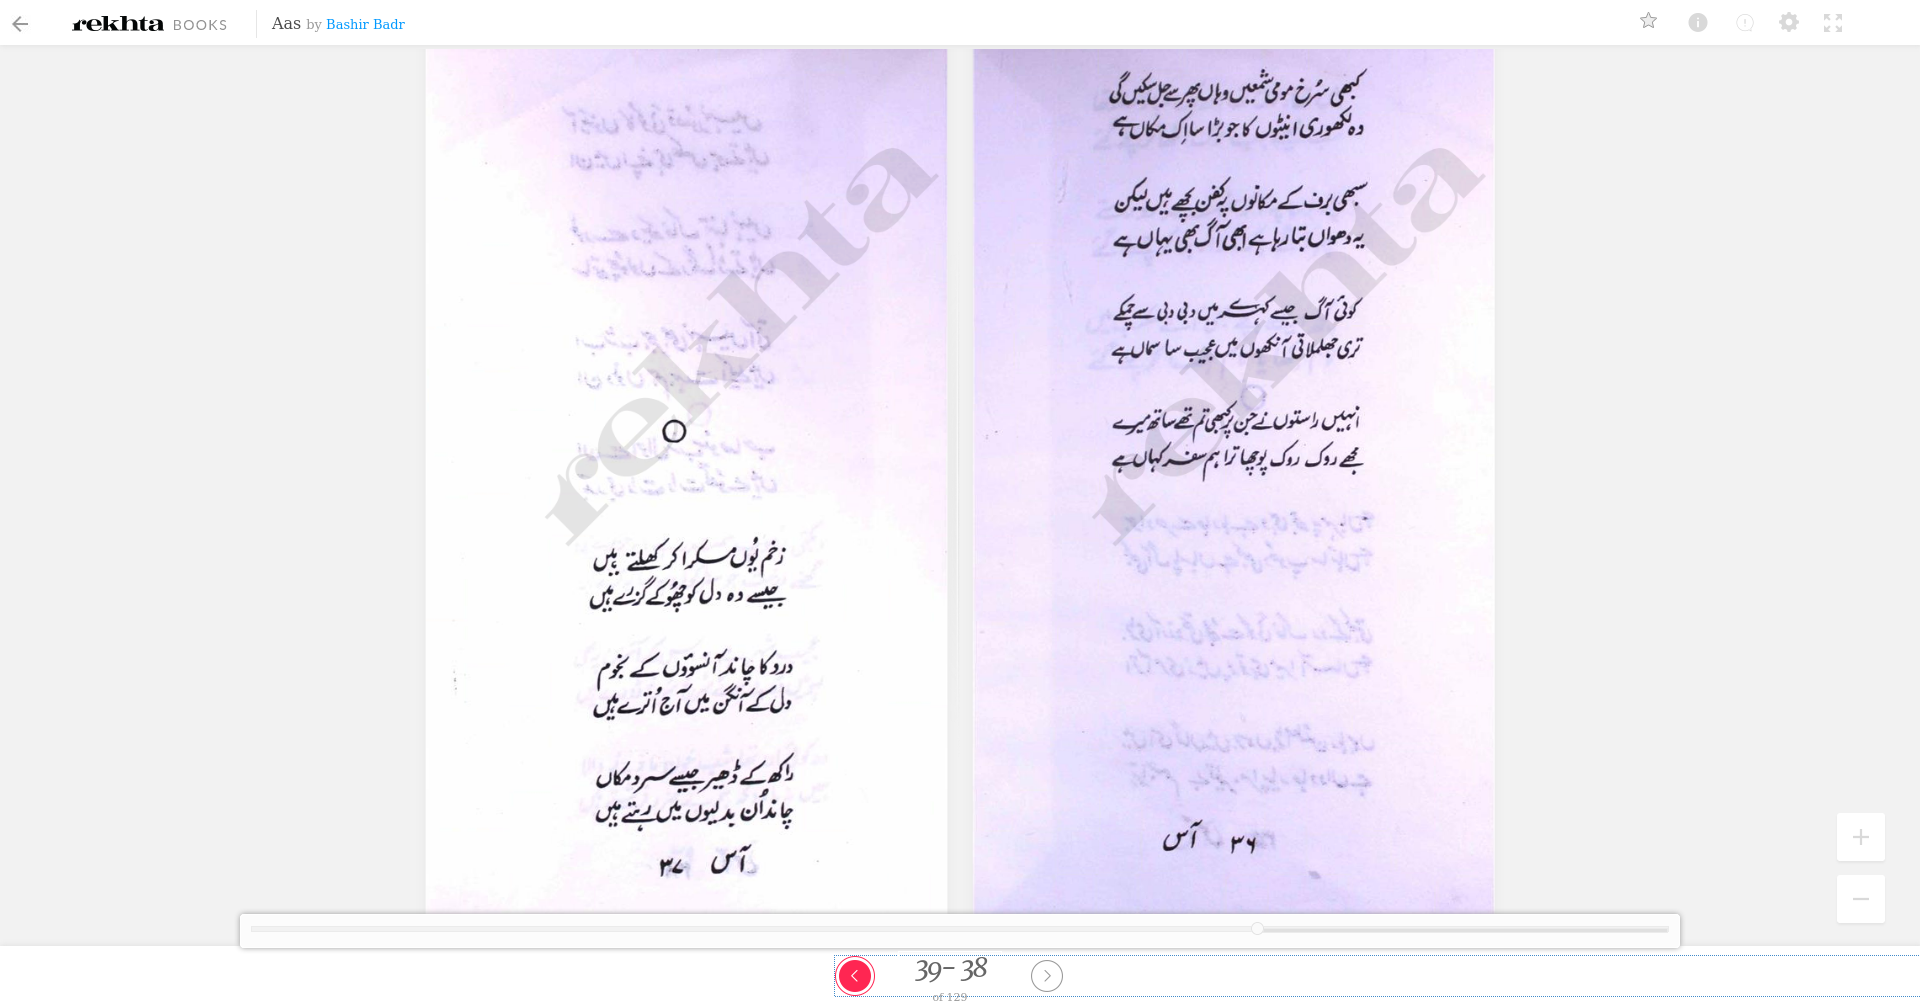 rekhta BOOKS Aas by Bashir Badr
کبھی سُرخ مومی شمعیں وہاں پھر سے جل سکیں گی
وہ لکھوری اینٹوں کا جو بڑا سا اِک مکاں ہے
سبھی برف کے مکانوں پہ کفن بچھے ہیں لیکن
یہ دھواں بتا رہا ہے ابھی آگ بھی یہاں ہے
کوئی آگ جیسے کہرے میں دبی دبی سے چمکے
تری جھلملاتی آنکھوں میں عجیب سا سماں ہے
انہیں راستوں نے جن پر کبھی تم تھے ساتھ میرے
مجھے روک روک پوچھا ترا ہم سفر کہاں ہے
۳۶ آس
زخم یُوں مسکرا کر کھلتے ہیں
جیسے وہ دل کو چھُو کے گزرے ہیں
درد کا چاند آنسوؤں کے نجوم
دل کے آنگن میں آج اُترے ہیں
راکھ کے ڈھیر جیسے سرد مکاں
چاند اُن بدلیوں میں رہتے ہیں
آس ۳۷
rekhta
rekhta
39- 38
of 129